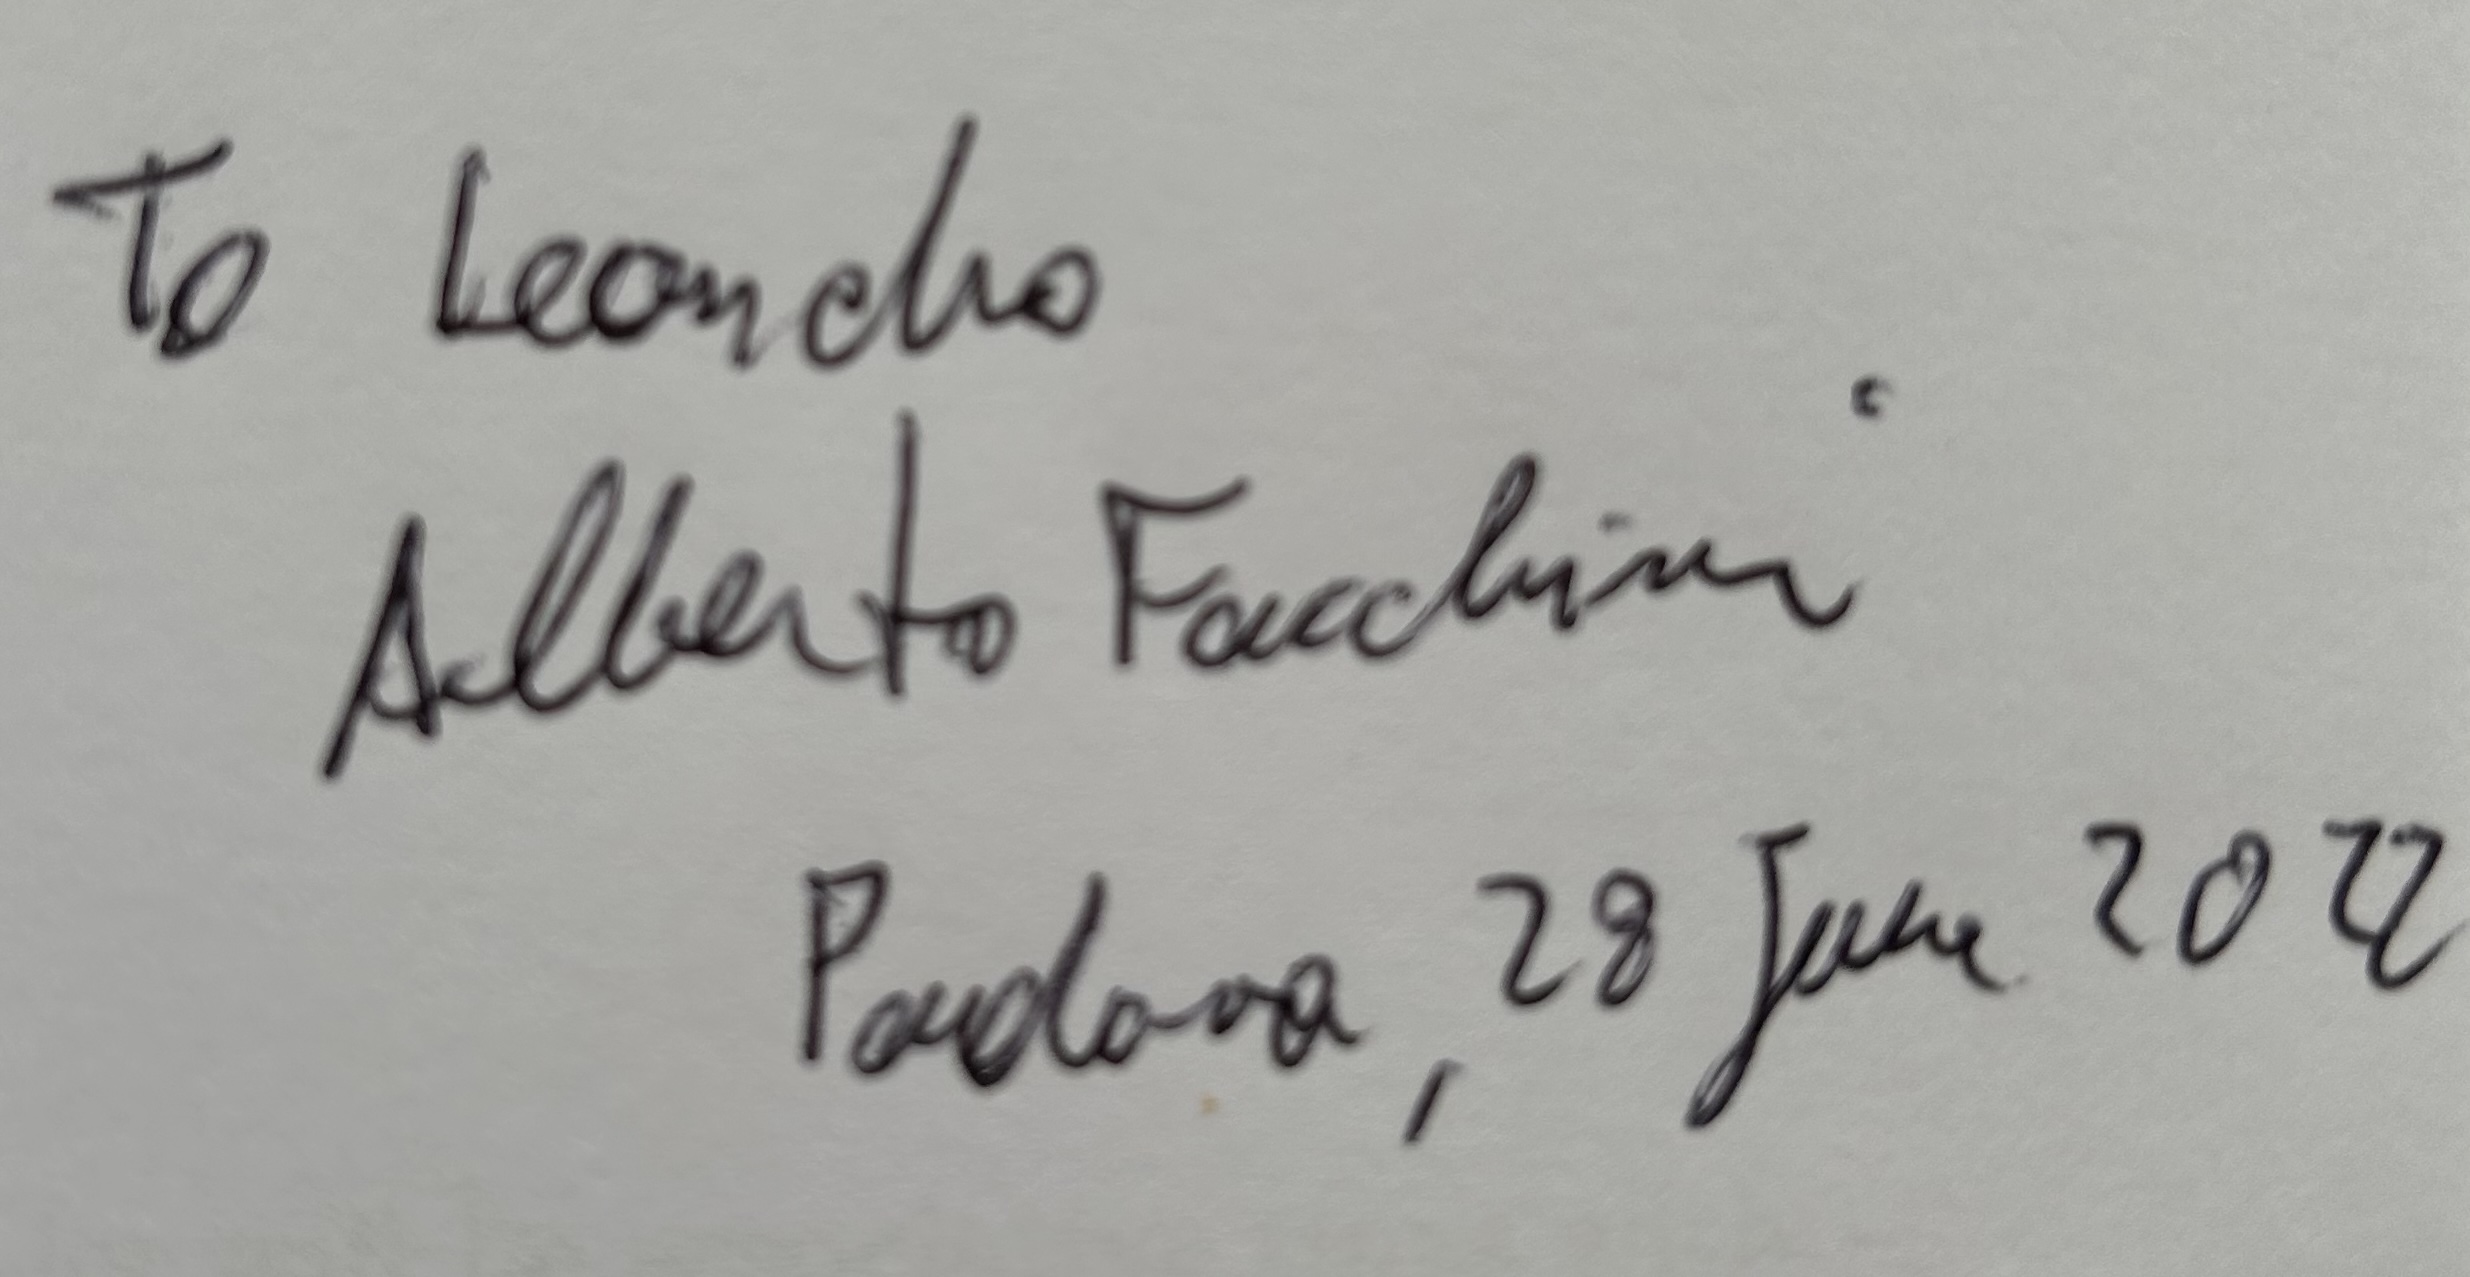 To Leandro
Alberto Facchini
Padova, 28 June 2022